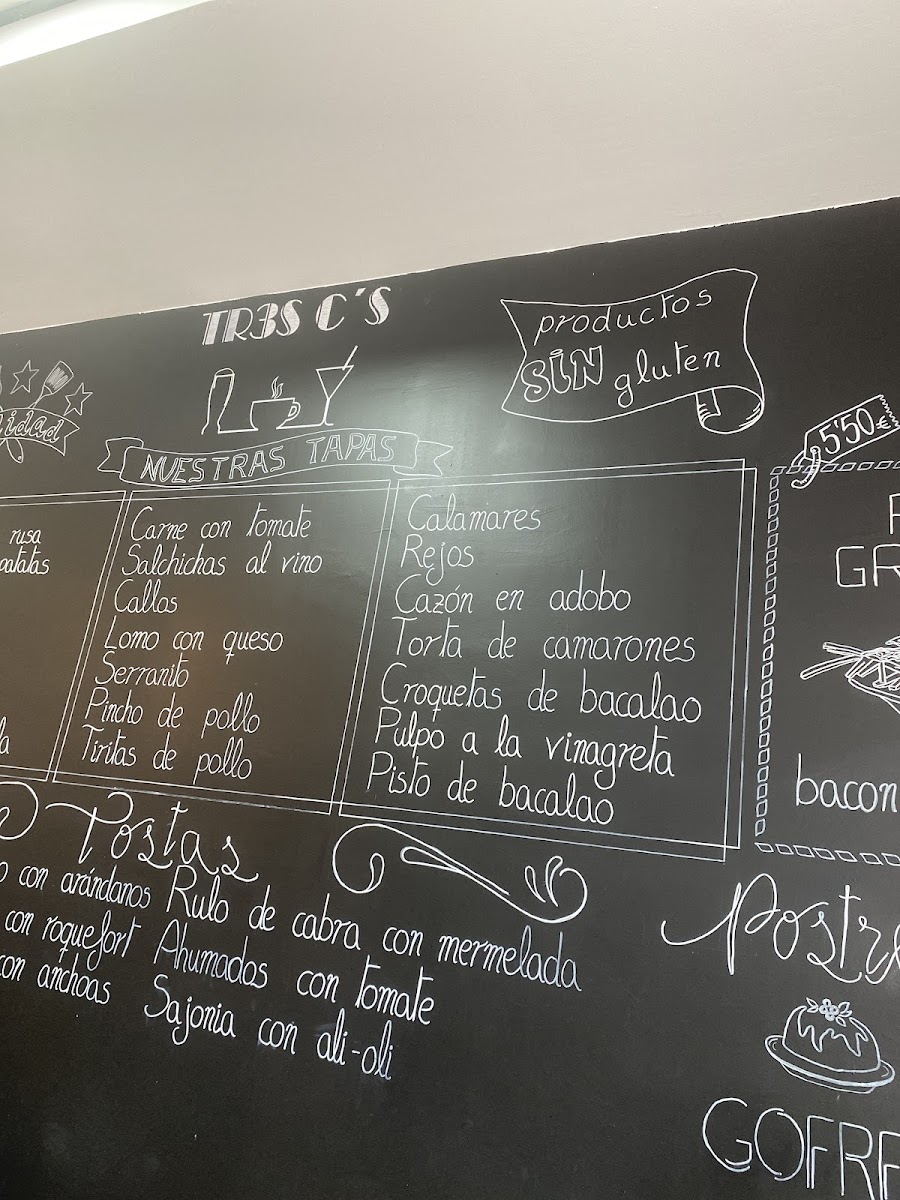 TR3S C'S
productos
SIN gluten
lidad
NUESTRAS TAPAS
5'50€
rusa
patatas
Carne con tomate
Salchichas al vino
Callos
Lomo con queso
Serranito
Pincho de pollo
Tiritas de pollo
Calamares
Rejos
Cazón en adobo
Torta de camarones
Croquetas de bacalao
Pulpo a la vinagreta
Pisto de bacalao
GR
bacon
Tostas
con arándanos
con roquefort
con anchoas
Rulo de cabra con mermelada
Ahumados con tomate
Sajonia con ali-oli
Postre
GOFRE